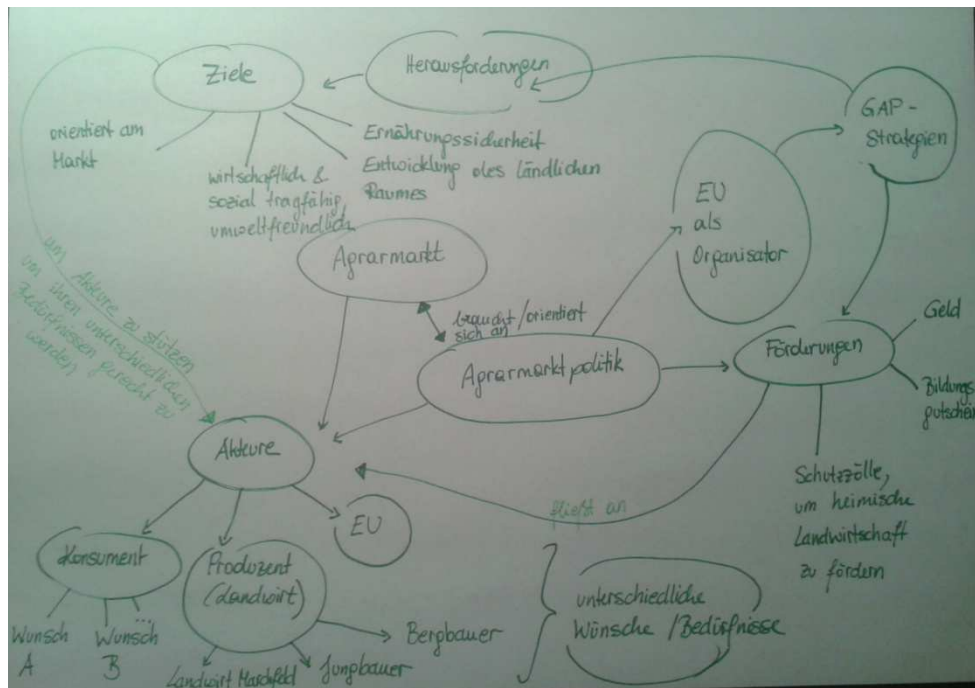 Ziele
Herausforderungen
GAP-
Strategien
orientiert am
Markt
wirtschaftlich &
sozial tragfähig,
umweltfreundlich
Ernährungssicherheit
Entwicklung des ländlichen
Raumes
EU
als
Organisator
Agrarmarkt
braucht/orientiert
sich an
Agrarmarktpolitik
Förderungen
Geld
Bildungs
gutschein
Schutzzölle,
um heimische
Landwirtschaft
zu fördern
um Akteure zu stützen
um ihren unterschiedlichen
Bedürfnissen gerecht zu
werden
Akteure
fließt an
Konsument
Produzent
(Landwirt)
EU
Wunsch
A
Wunsch
B
...
Landwirt Marchfeld
Jungbauer
Bergbauer
unterschiedliche
Wünsche/Bedürfnisse